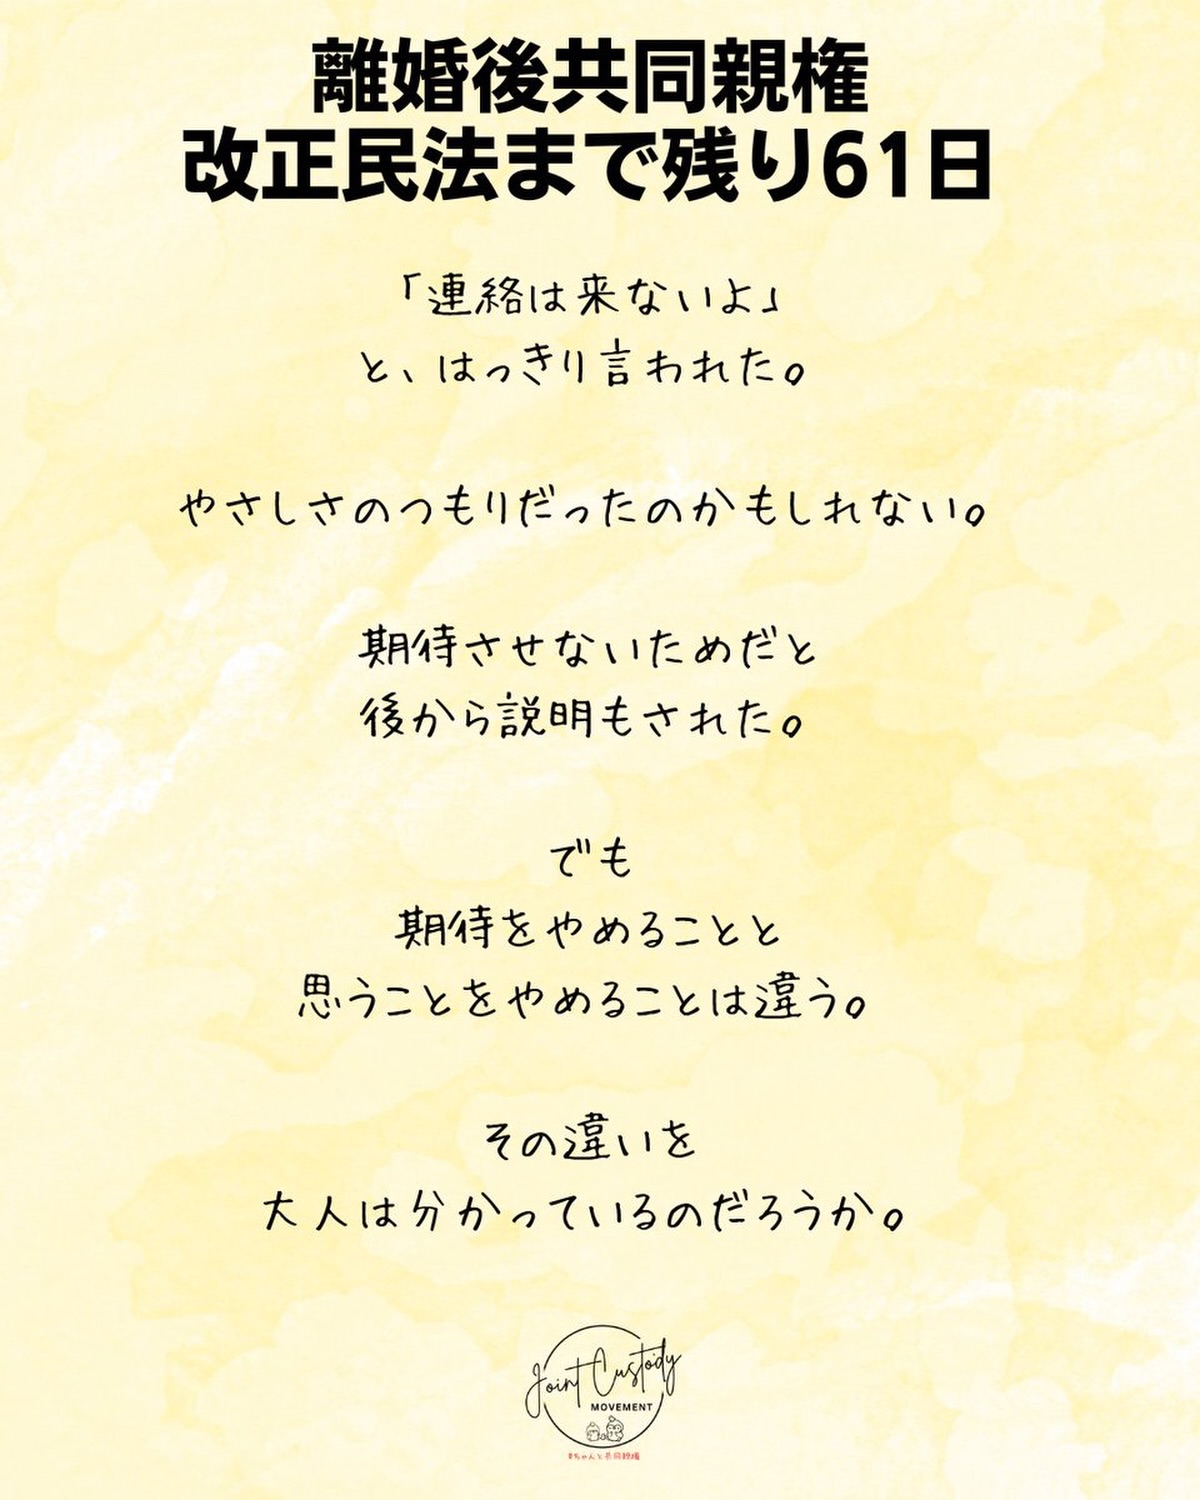 離婚後共同親権
改正民法まで残り61日
「連絡は来ないよ」
と、はっきり言われた。
やさしさのつもりだったのかもしれない。
期待させないためだと
後から説明もされた。
でも
期待をやめることと
思うことをやめることは違う。
その違いを
大人は分かっているのだろうか。
Joint Custody
MOVEMENT
#ちゃんと共同親権